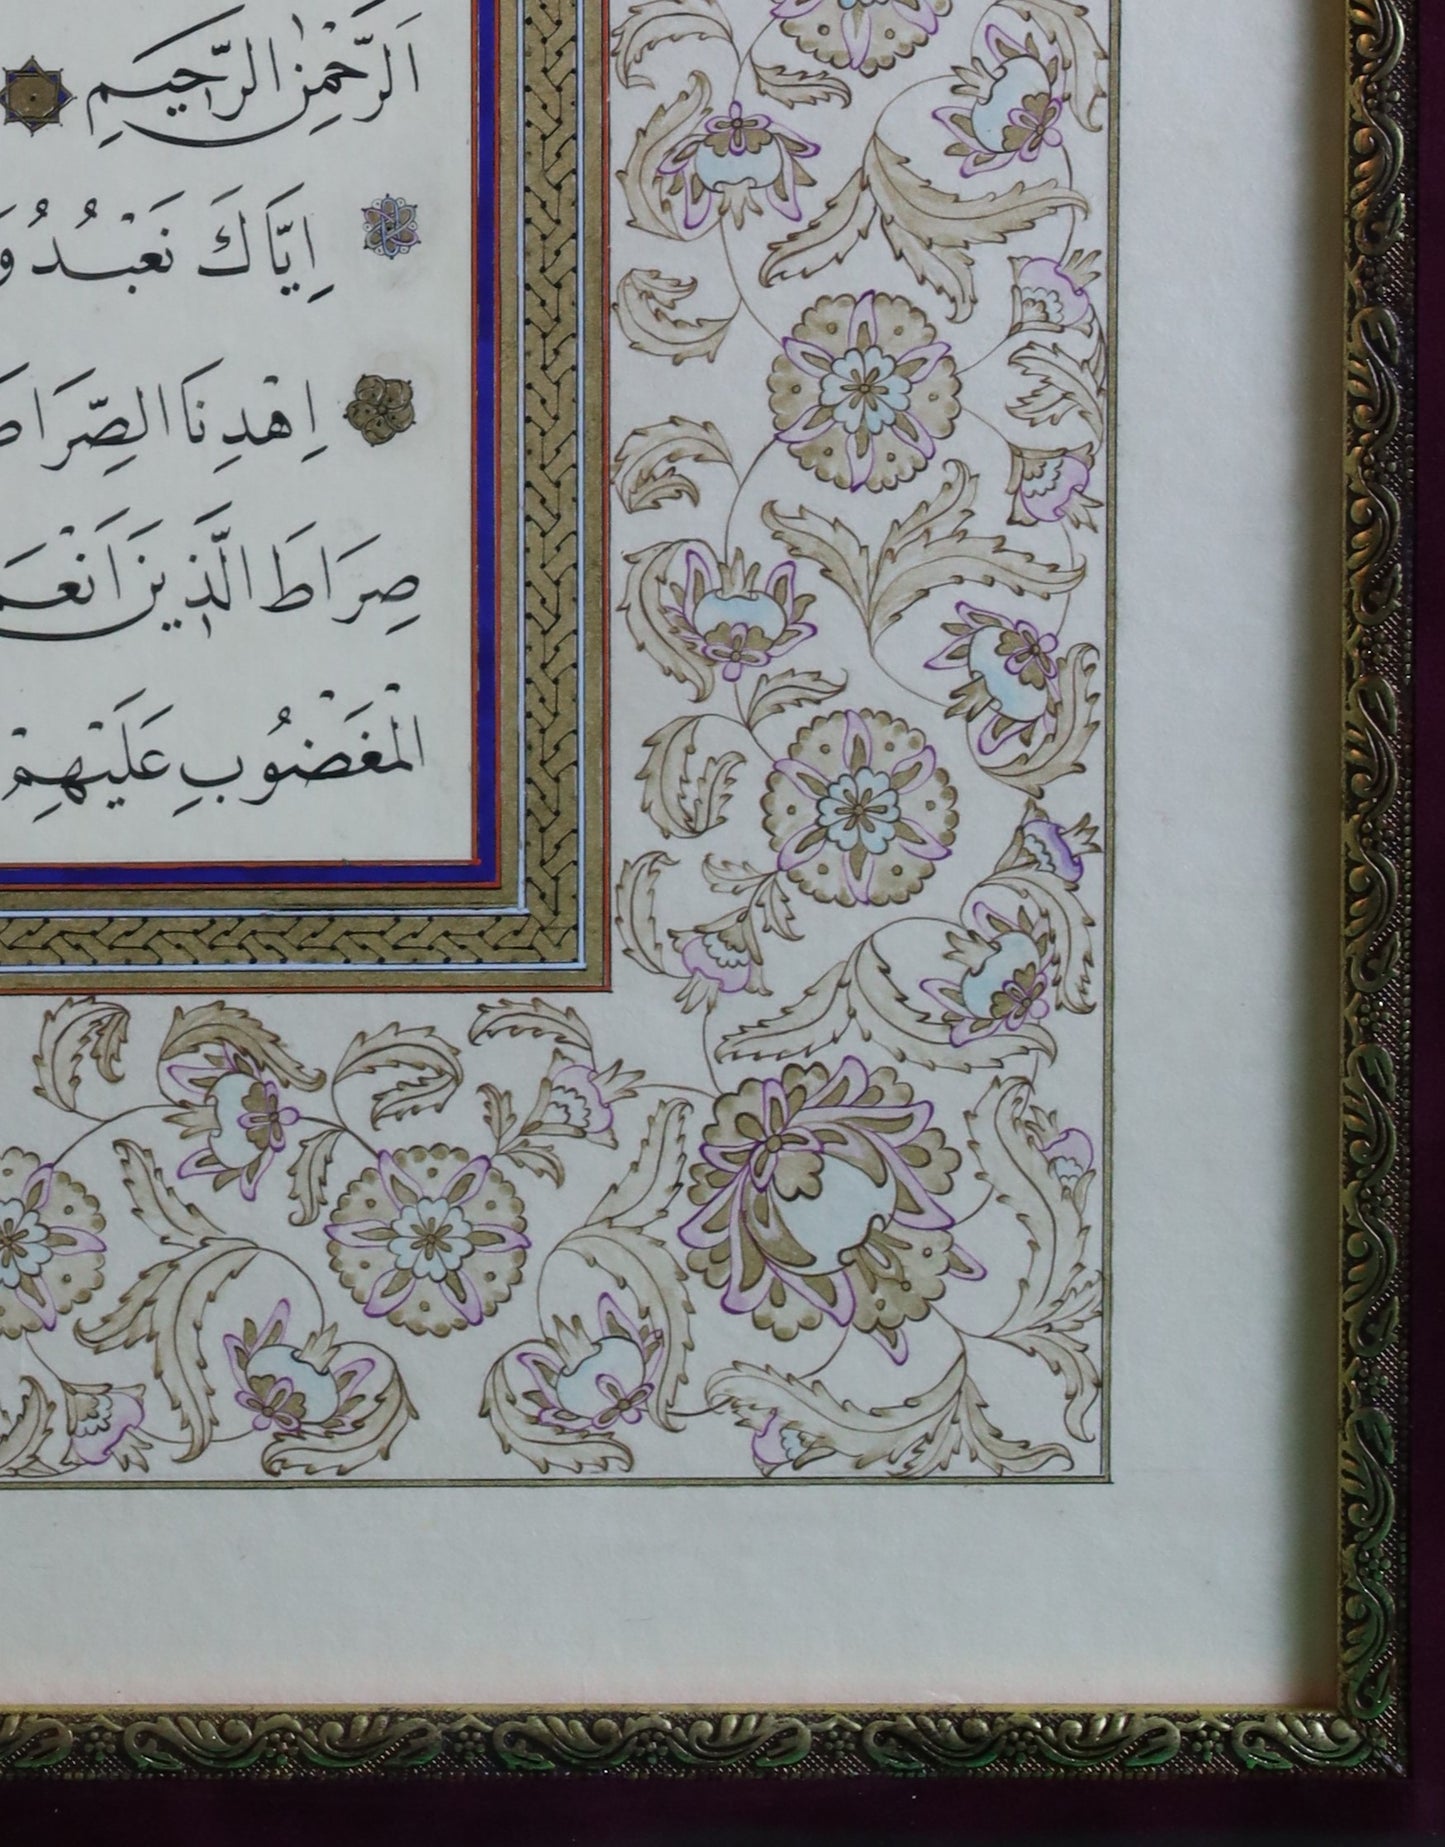 اَلرَّحْمٰنِ الرَّحِيمِ
اِيَّاكَ نَعْبُدُ وَ
اِهْدِنَا الصِّرَاطَ
صِرَاطَ الَّذِينَ اَنْعَمْ
الْمَغْضُوبِ عَلَيْهِمْ